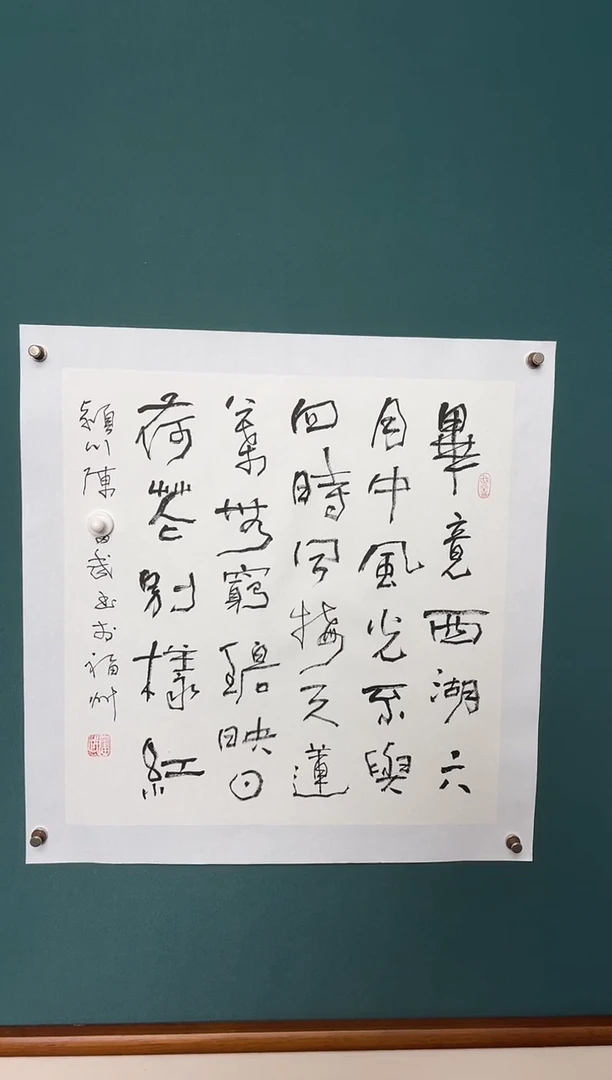 畢竟西湖六
月中風光不與
四時同接天蓮
葉無窮碧映日
荷花別樣紅
潁川陳武书於福州